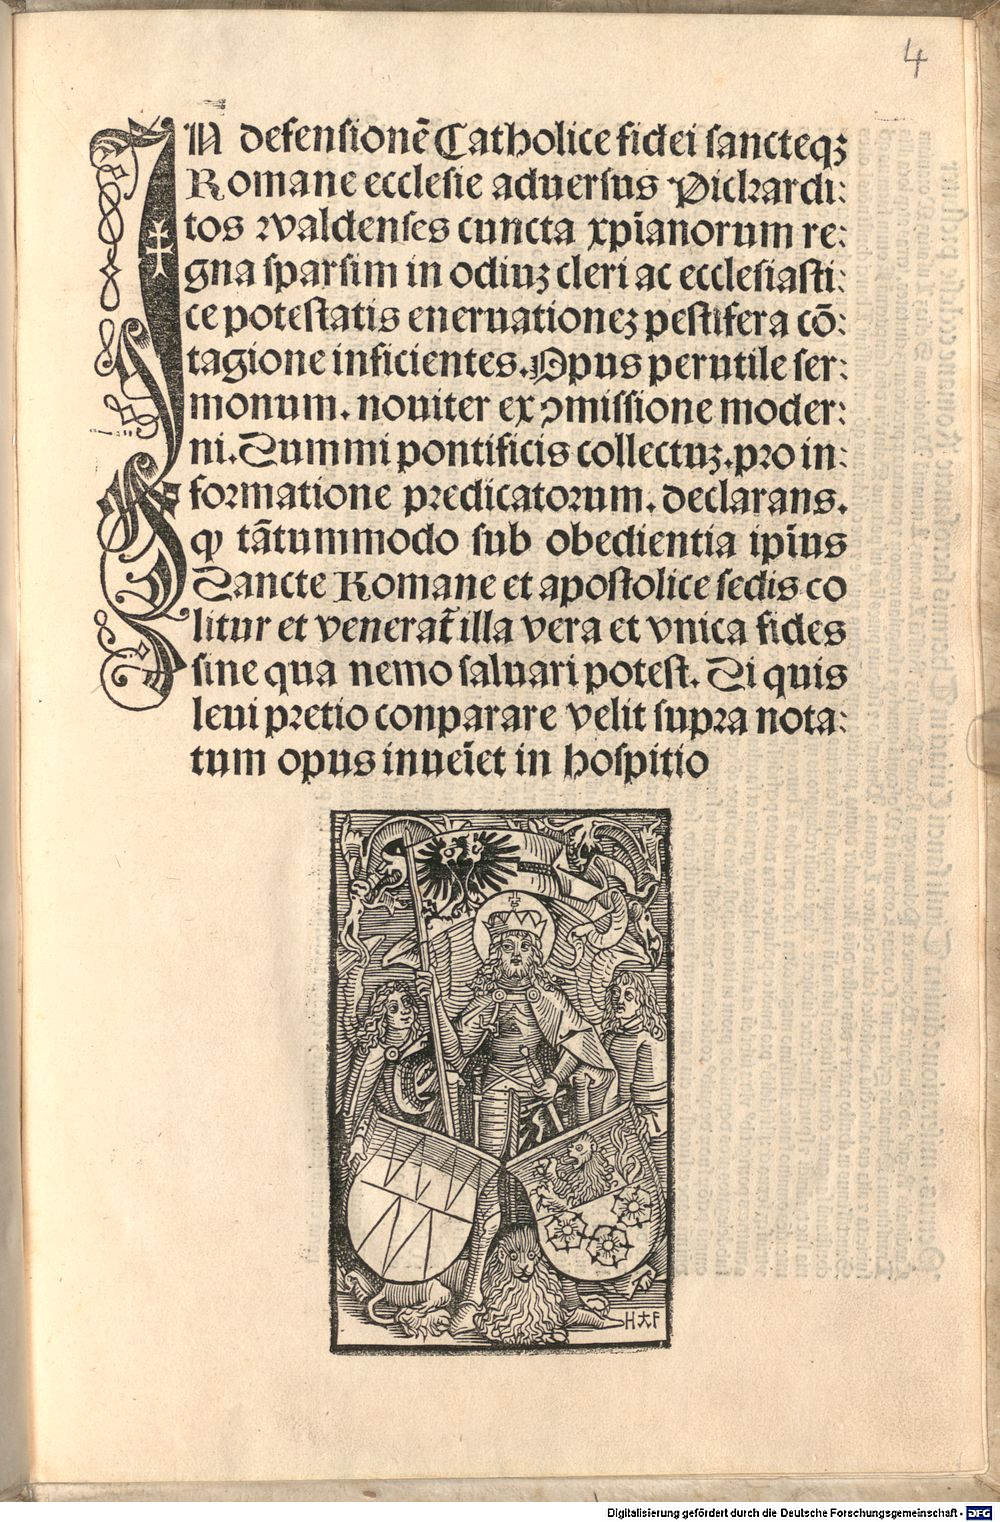 4
IN defensionē Catholice fidei sancteqꝫ
Romane ecclesie aduersus Pickardi:
tos waldenses cuncta xp̄ianorum re:
gna sparsim in odiuꝫ cleri ac ecclesiasti:
ce potestatis eneruationeꝫ pestifera cō:
tagione inficientes. Opus perutile ser:
monum. nouiter ex ꝯmissione moder:
ni. Summi pontificis collectuꝫ. pro in:
formatione predicatorum. declarans.
ꝙ tātummodo sub obedientia ip̄ius
Sancte Romane et apostolice sedis co
litur et venerat̄ illa vera et vnica fides
sine qua nemo saluari potest. Si quis
leui pretio conparare velit supra nota:
tum opus inueīet in hospitio
H F
Digitalisierung gefördert durch die Deutsche Forschungsgemeinschaft - DFG